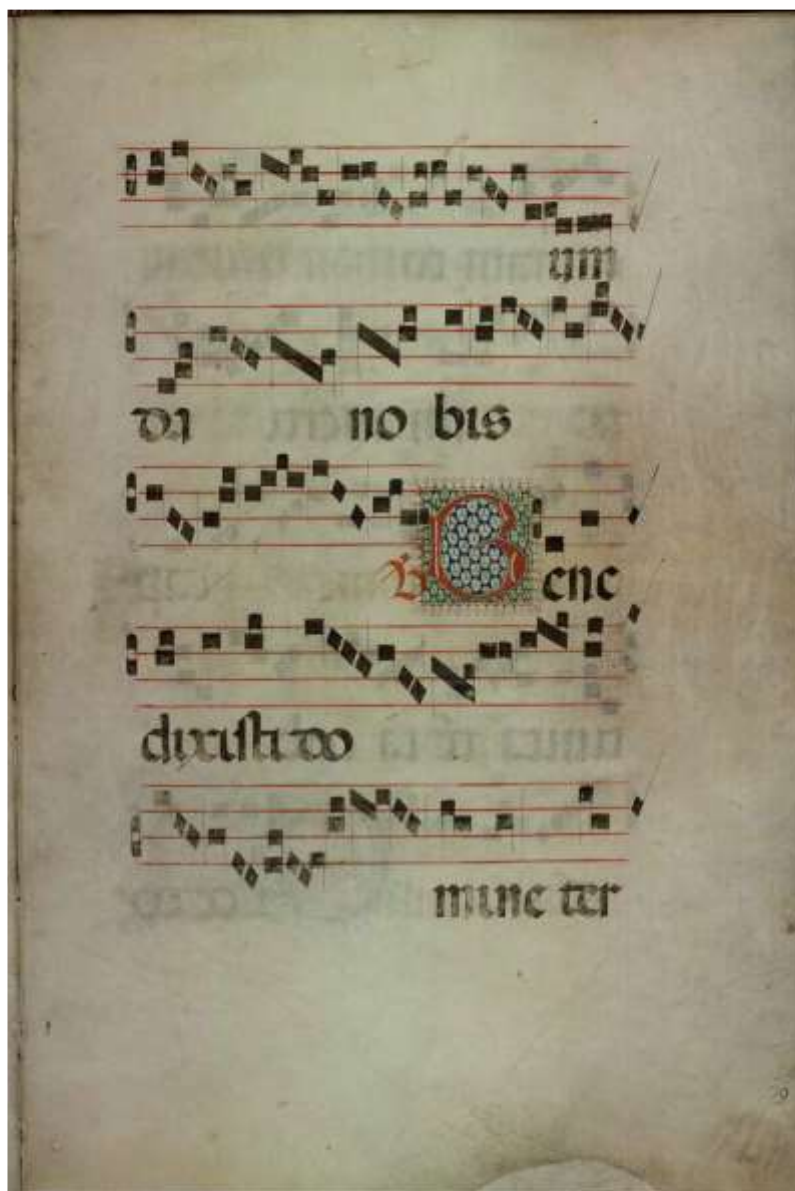 ym
da no bis
℣ Bene
dixisti do
mine ter